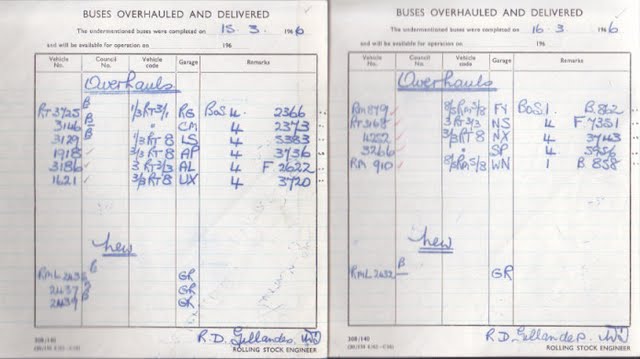 BUSES OVERHAULED AND DELIVERED
The undermentioned buses were completed on 15. 3. 1966
and will be available for operation on 196
Vehicle No. Council No. Vehicle code Garage Remarks
Overhauls
RT3725 B 1/3RT3/1 RG BoS 4. 2366
3146 B " CM 4 2373
3129 B 1/3RT8 LS 4 3383
1918 ✓ 3/3RT8 AP 4 3736
3186 ✓ 3RT3/3 AL 4 F 2622
1621 ✓ 3/3RT8 UX 4 3720
New
RML 2436 B GR
2437 B GR
2439 B GR
308/140
R.D. Gellandes.
ROLLING STOCK ENGINEER
BUSES OVERHAULED AND DELIVERED
The undermentioned buses were completed on 16. 3. 1966
and will be available for operation on 196
Vehicle No. Council No. Vehicle code Garage Remarks
Overhauls
RM879 ✓ FY BoS 1. B.812
RT3168 ✓ NS 4 F 7351
4252 ✓ 3/3RT8 NX 4
3266 ✓ " SP 4
RM 910 ✓ WN 1 B 858
New
RML 2432 B GR
308/140
R.D. Gellandes.
ROLLING STOCK ENGINEER